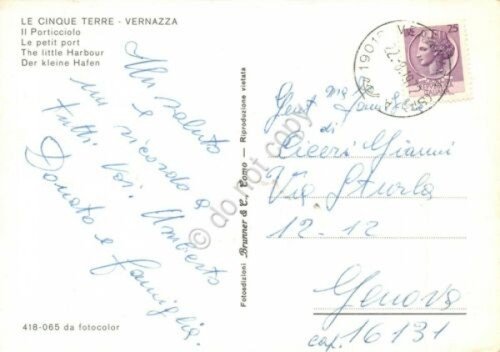 LE CINQUE TERRE - VERNAZZA
Il Porticciolo
Le petit port
The little Harbour
Der kleine Hafen
Un saluto
e ricordo a
tutti voi. Umberto
Donato e famiglia.
418-065 da fotocolor
Fotoedizioni Brunner & C., Como - Riproduzione vietata
do not copy
19018 VE
25
Gent. ma Famiglia
di
Ciceri Gianni
Via Sturla
12-12
Genova
cap. 16131